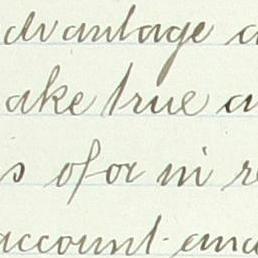 advantage a
ake true a
s of or in re
account and